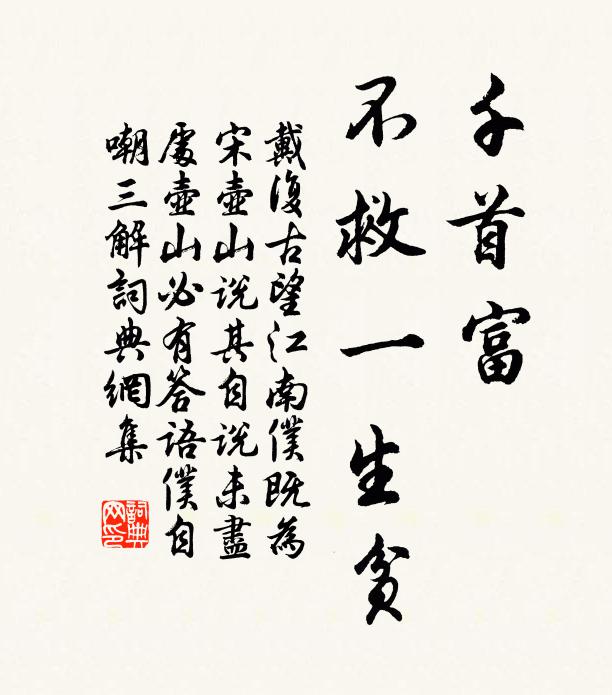 千首富
不救一生貧
戴復古望江南僕既為
宋壺山說其自說未盡
處壺山必有答語僕自
嘲三解詞典網集
詞典网印